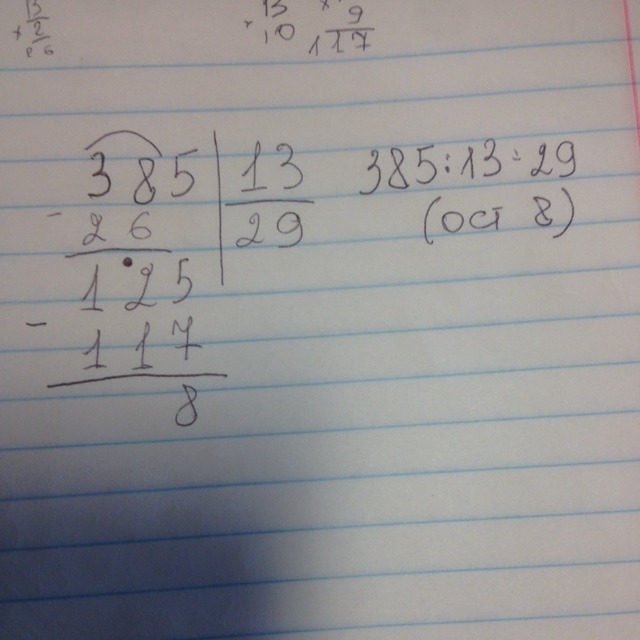 13 13 9
× 2 × 10 117
26
385 13 385:13=29
- 26 29 (ост 8)
125
- 117
8